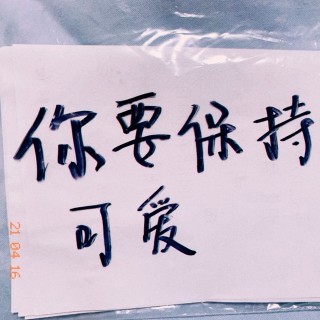 你要保持
可爱
21 04 16